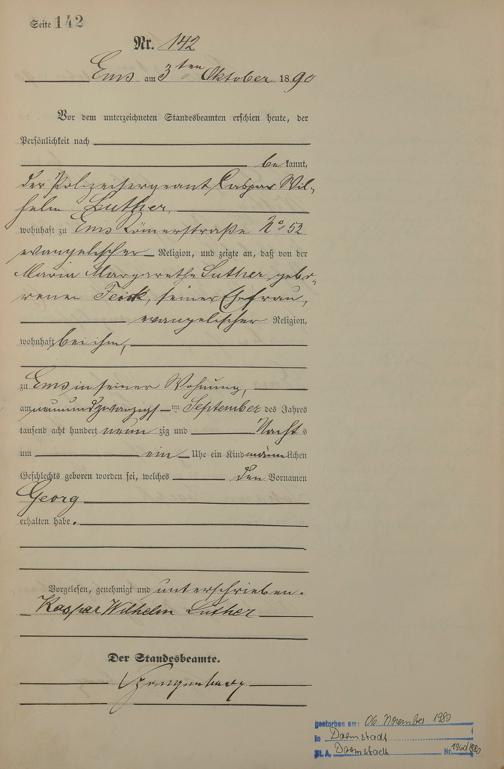 Seite 142
Nr. 142
Ems am 3ten Oktober 1890
Vor dem unterzeichneten Standesbeamten erschien heute, der
Persönlichkeit nach
bekannt,
der Polizeisergeant Caspar Wil-
helm Luther,
wohnhaft zu Ems Römerstraße No 52
evangelischer Religion, und zeigte an, daß von der
Maria Margarethe Luther gebo-
renen Feick, seiner Ehefrau,
evangelischer Religion,
wohnhaft bei ihm,
zu Ems in seiner Wohnung,
am neunundzwanzigsten September des Jahres
tausend acht hundert neunzig und Nachts
um ein Uhr ein Kind männlichen
Geschlechts geboren worden sei, welches den Vornamen
Georg
erhalten habe.
Vorgelesen, genehmigt und unterschrieben.
Kaspar Wilhelm Luther
Der Standesbeamte.
gestorben am: 06. November 1980
in Darmstadt
St. A. Darmstadt Nr.